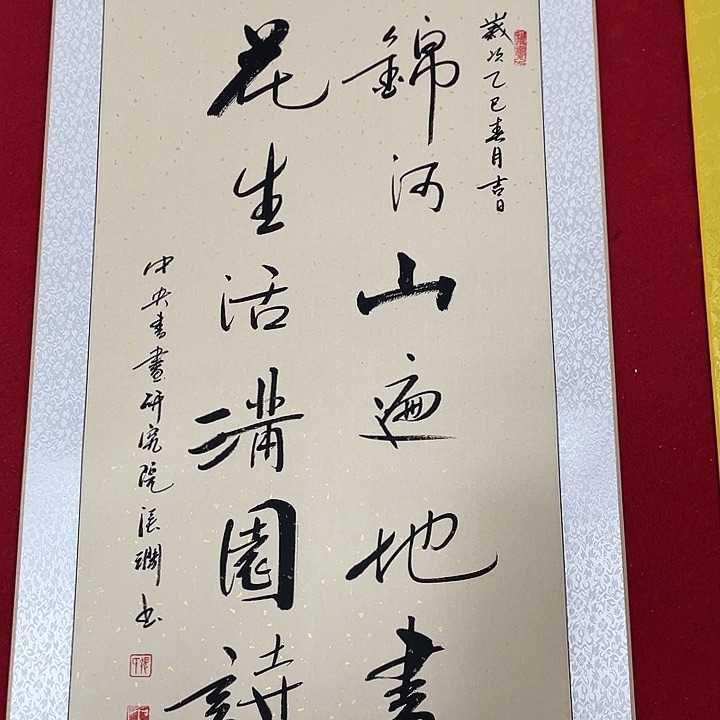 歲次乙巳春月吉日
錦河山遍地書
花生活滿園詩
中央書畫研究院張瓓书